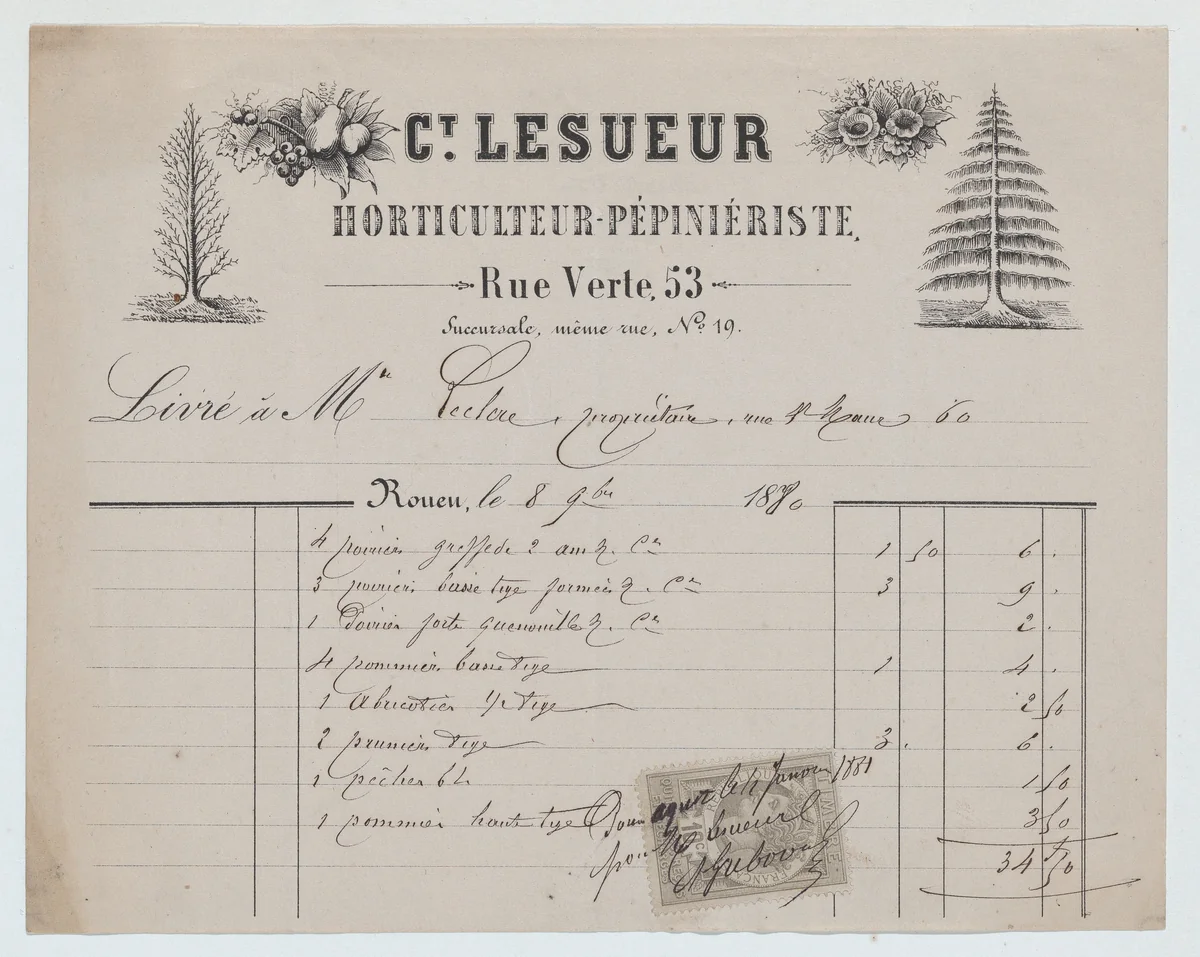 CT. LESUEUR
HORTICULTEUR-PÉPINIÉRISTE,
Rue Verte, 53
Succursale, même rue, No 19.
Livré à Mr Leclerc, propriétaire, rue St Maur 60
Rouen, le 8 9bre 1880
4 poiriers greffe de 2 ans 1 50 6 .
3 poiriers basse tige formés 3 9 .
1 Poirier forte quenouille 2 .
4 pommiers basse tige 1 4 .
1 Abricotier 1/2 tige 2 50
2 pruniers tige 3 . 6 .
1 pêcher 1 50
1 pommier haute tige 3 50
34 50
Pour acquit le Janvier 1881
pour Lesueur
TIMBRE